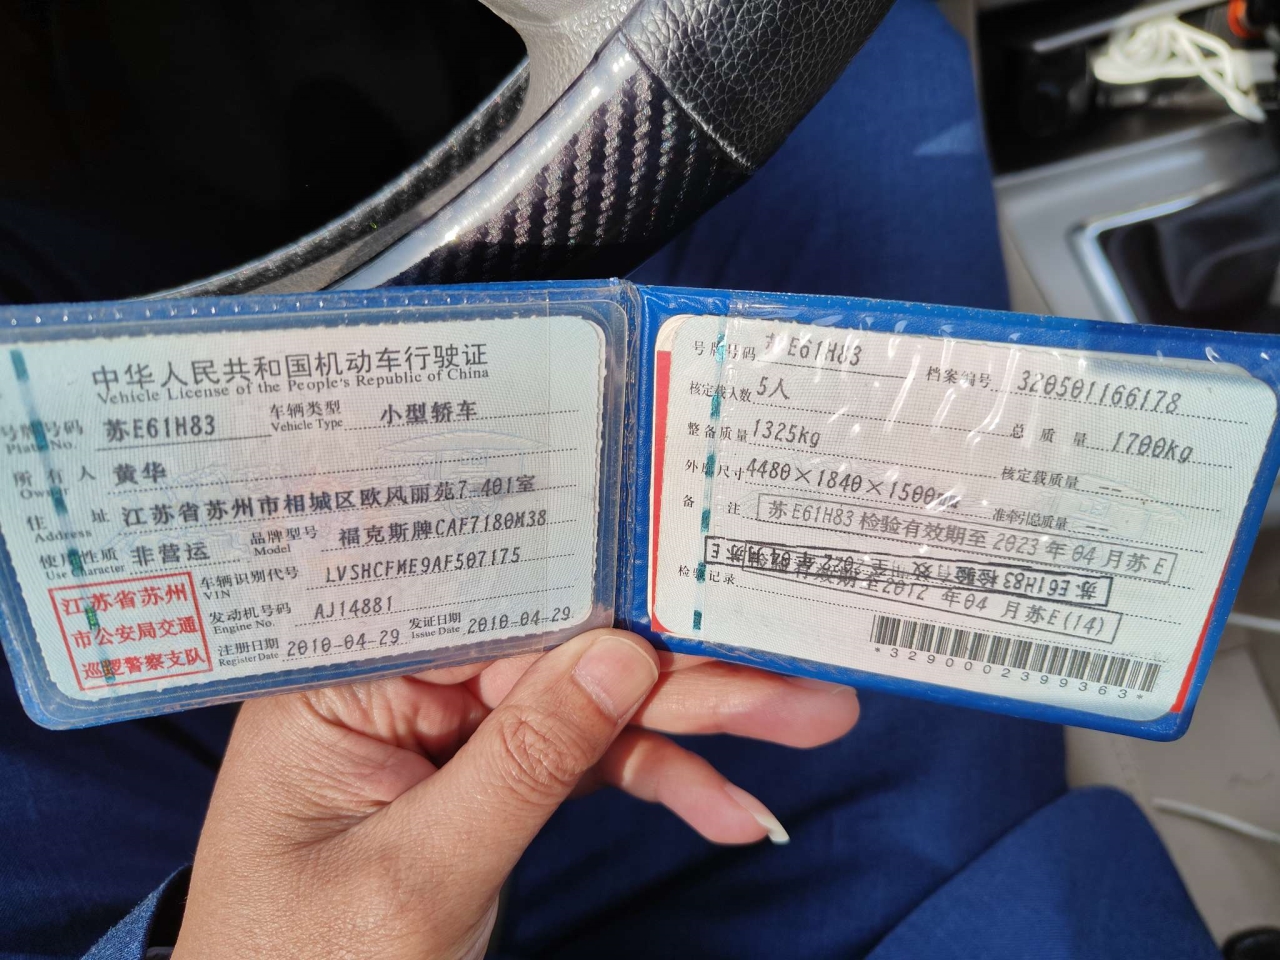 中华人民共和国机动车行驶证
Vehicle License of the People's Republic of China
号牌号码 苏E61H83 车辆类型 小型轿车
Plate No. Vehicle Type
所有人 黄华
Owner
住址 江苏省苏州市相城区欧风丽苑7-401室
Address
使用性质 非营运 品牌型号 福克斯牌CAF7180M38
Use Character Model
江苏省苏州
市公安局交通
巡逻警察支队
车辆识别代号 LVSHCFME9AF507175
VIN
发动机号码 AJ14881
Engine No.
注册日期 2010-04-29 发证日期 2010-04-29
Register Date Issue Date
号牌号码 苏E61H83 档案编号 320501166178
核定载人数 5人 总质量 1700kg
整备质量 1325kg 核定载质量 --
外廓尺寸 4480×1840×1500mm 准牵引总质量 --
备注 苏E61H83 检验有效期至 2023 年 04 月苏 E
检验记录
2012 年04 月苏E(14)
*3290002399363*